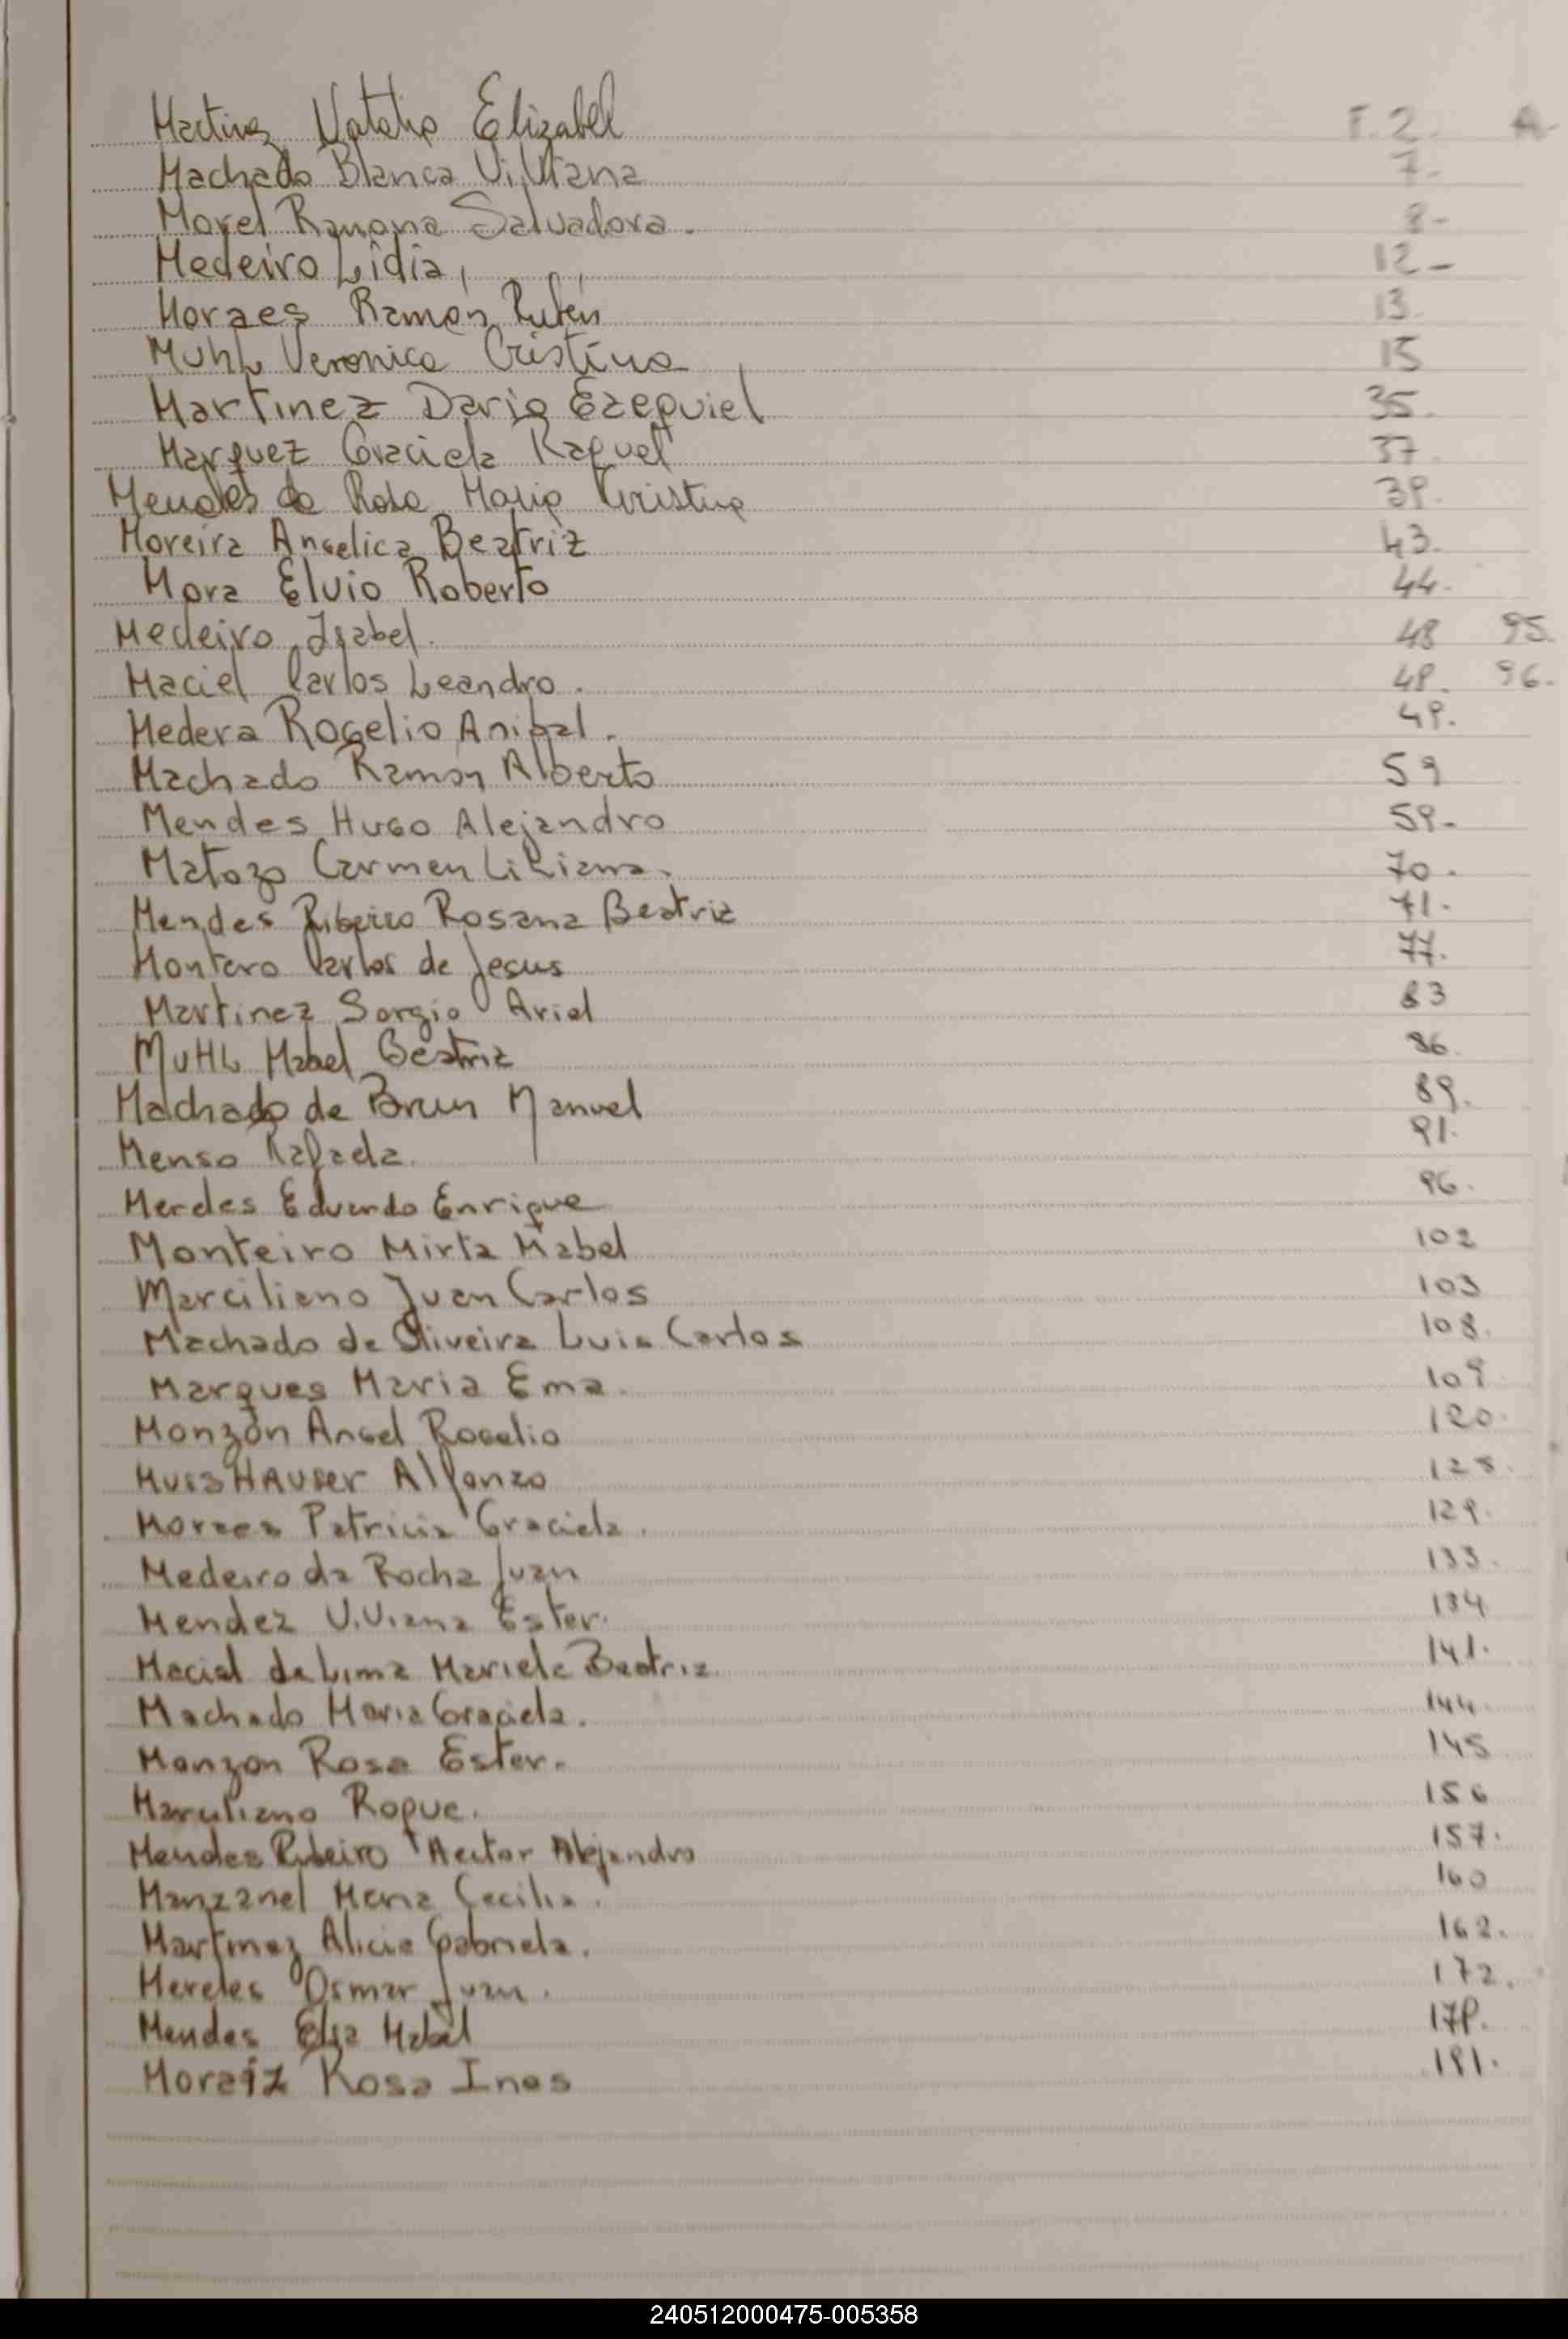 Martinez Natalia Elizabeth F. 2. A.
Machado Blanca Viviana 7.
Morel Ramona Salvadora. 8-
Medeiro Lidia, 12-
Moraes Ramón Rubén 13.
Muhl Veronica Cristina 15
Martinez Dario Ezequiel 35.
Marquez Graciela Raquel 37.
Mendes da Rosa Maria Cristina 39.
Moreira Angelica Beatriz 43.
Mora Elvio Roberto 44.
Medeiro Isabel. 48 95.
Maciel Carlos Leandro. 48. 96.
Medera Rogelio Anibal. 49.
Machado Ramón Alberto 59
Mendes Hugo Alejandro 59-
Matozo Carmen Liliana. 70.
Mendes Ribeiro Rosana Beatriz 71.
Montero Carlos de Jesus 77.
Martinez Sergio Ariel 83
MUHL Mabel Beatriz 86.
Machado de Brum Manuel 89.
Menso Rafaela. 91.
Merdes Eduardo Enrique 96.
Monteiro Mirta Mabel 102
Marciliano Juan Carlos 103
Machado de Oliveira Luis Carlos 108.
Marques Maria Ema. 109
Monzón Angel Rogelio 120.
Alfonzo 128.
Moraes Patricia Graciela. 129.
Medeiro da Rocha Juan 133.
Mendez Viviana Ester. 134
Maciel de Lima Mariela Beatriz. 141.
Machado Maria Graciela. 144.
Monzon Rosa Ester. 145
Marciliano Roque. 156
Mendes Ribeiro Hector Alejandro 157.
Manzanel Maria Cecilia. 160
Martinez Alicia Gabriela. 162.
Mereles Osmar Juan. 172.
Mendes Elsa Mabel 179.
Moraiz Rosa Ines 181.
240512000475-005358